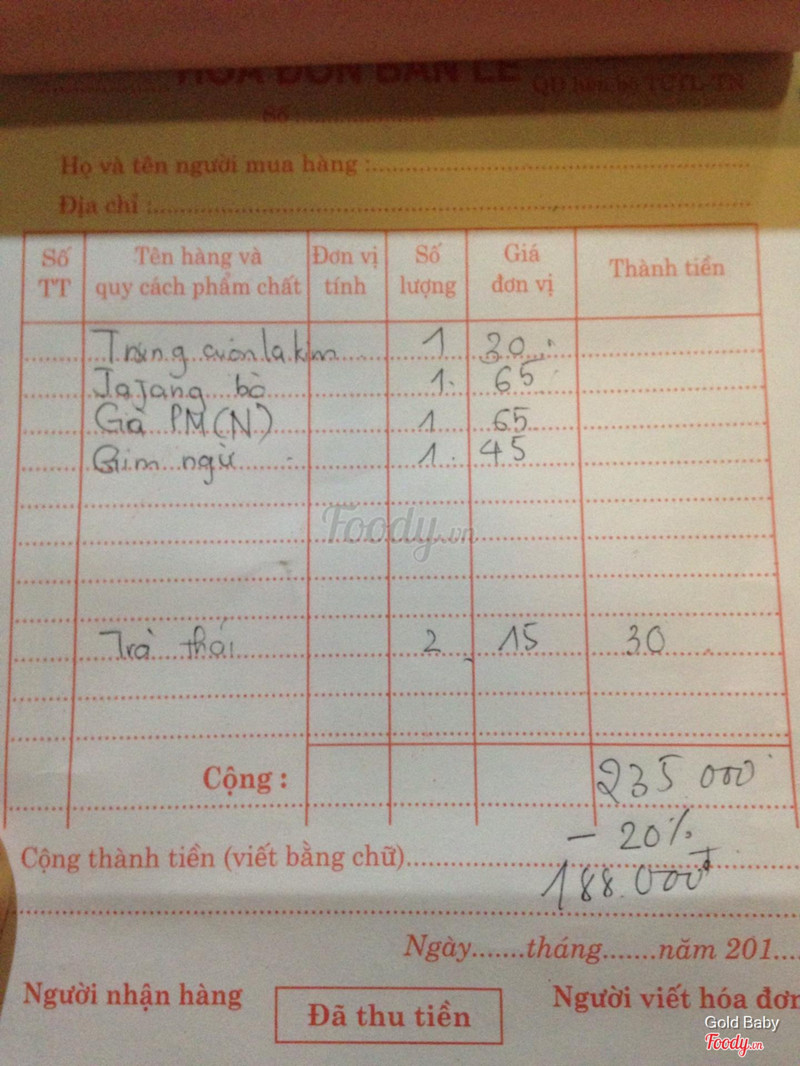 HÓA ĐƠN BÁN LẺ
Số :
Họ và tên người mua hàng :
Địa chỉ :
Số TT Tên hàng và quy cách phẩm chất Đơn vị tính Số lượng Giá đơn vị Thành tiền
Trứng cuộn lá kim 1 30
Jajang bò 1 65
Gà PM(N) 1 65
Gim ngừ 1 45
Foody.vn
Trà thái 2 15 30
Cộng : 235 000
- 20%
Cộng thành tiền (viết bằng chữ)
188.000đ
Ngày.......tháng.......năm 201....
Người nhận hàng Đã thu tiền Người viết hóa đơn
Gold Baby
Foody.vn